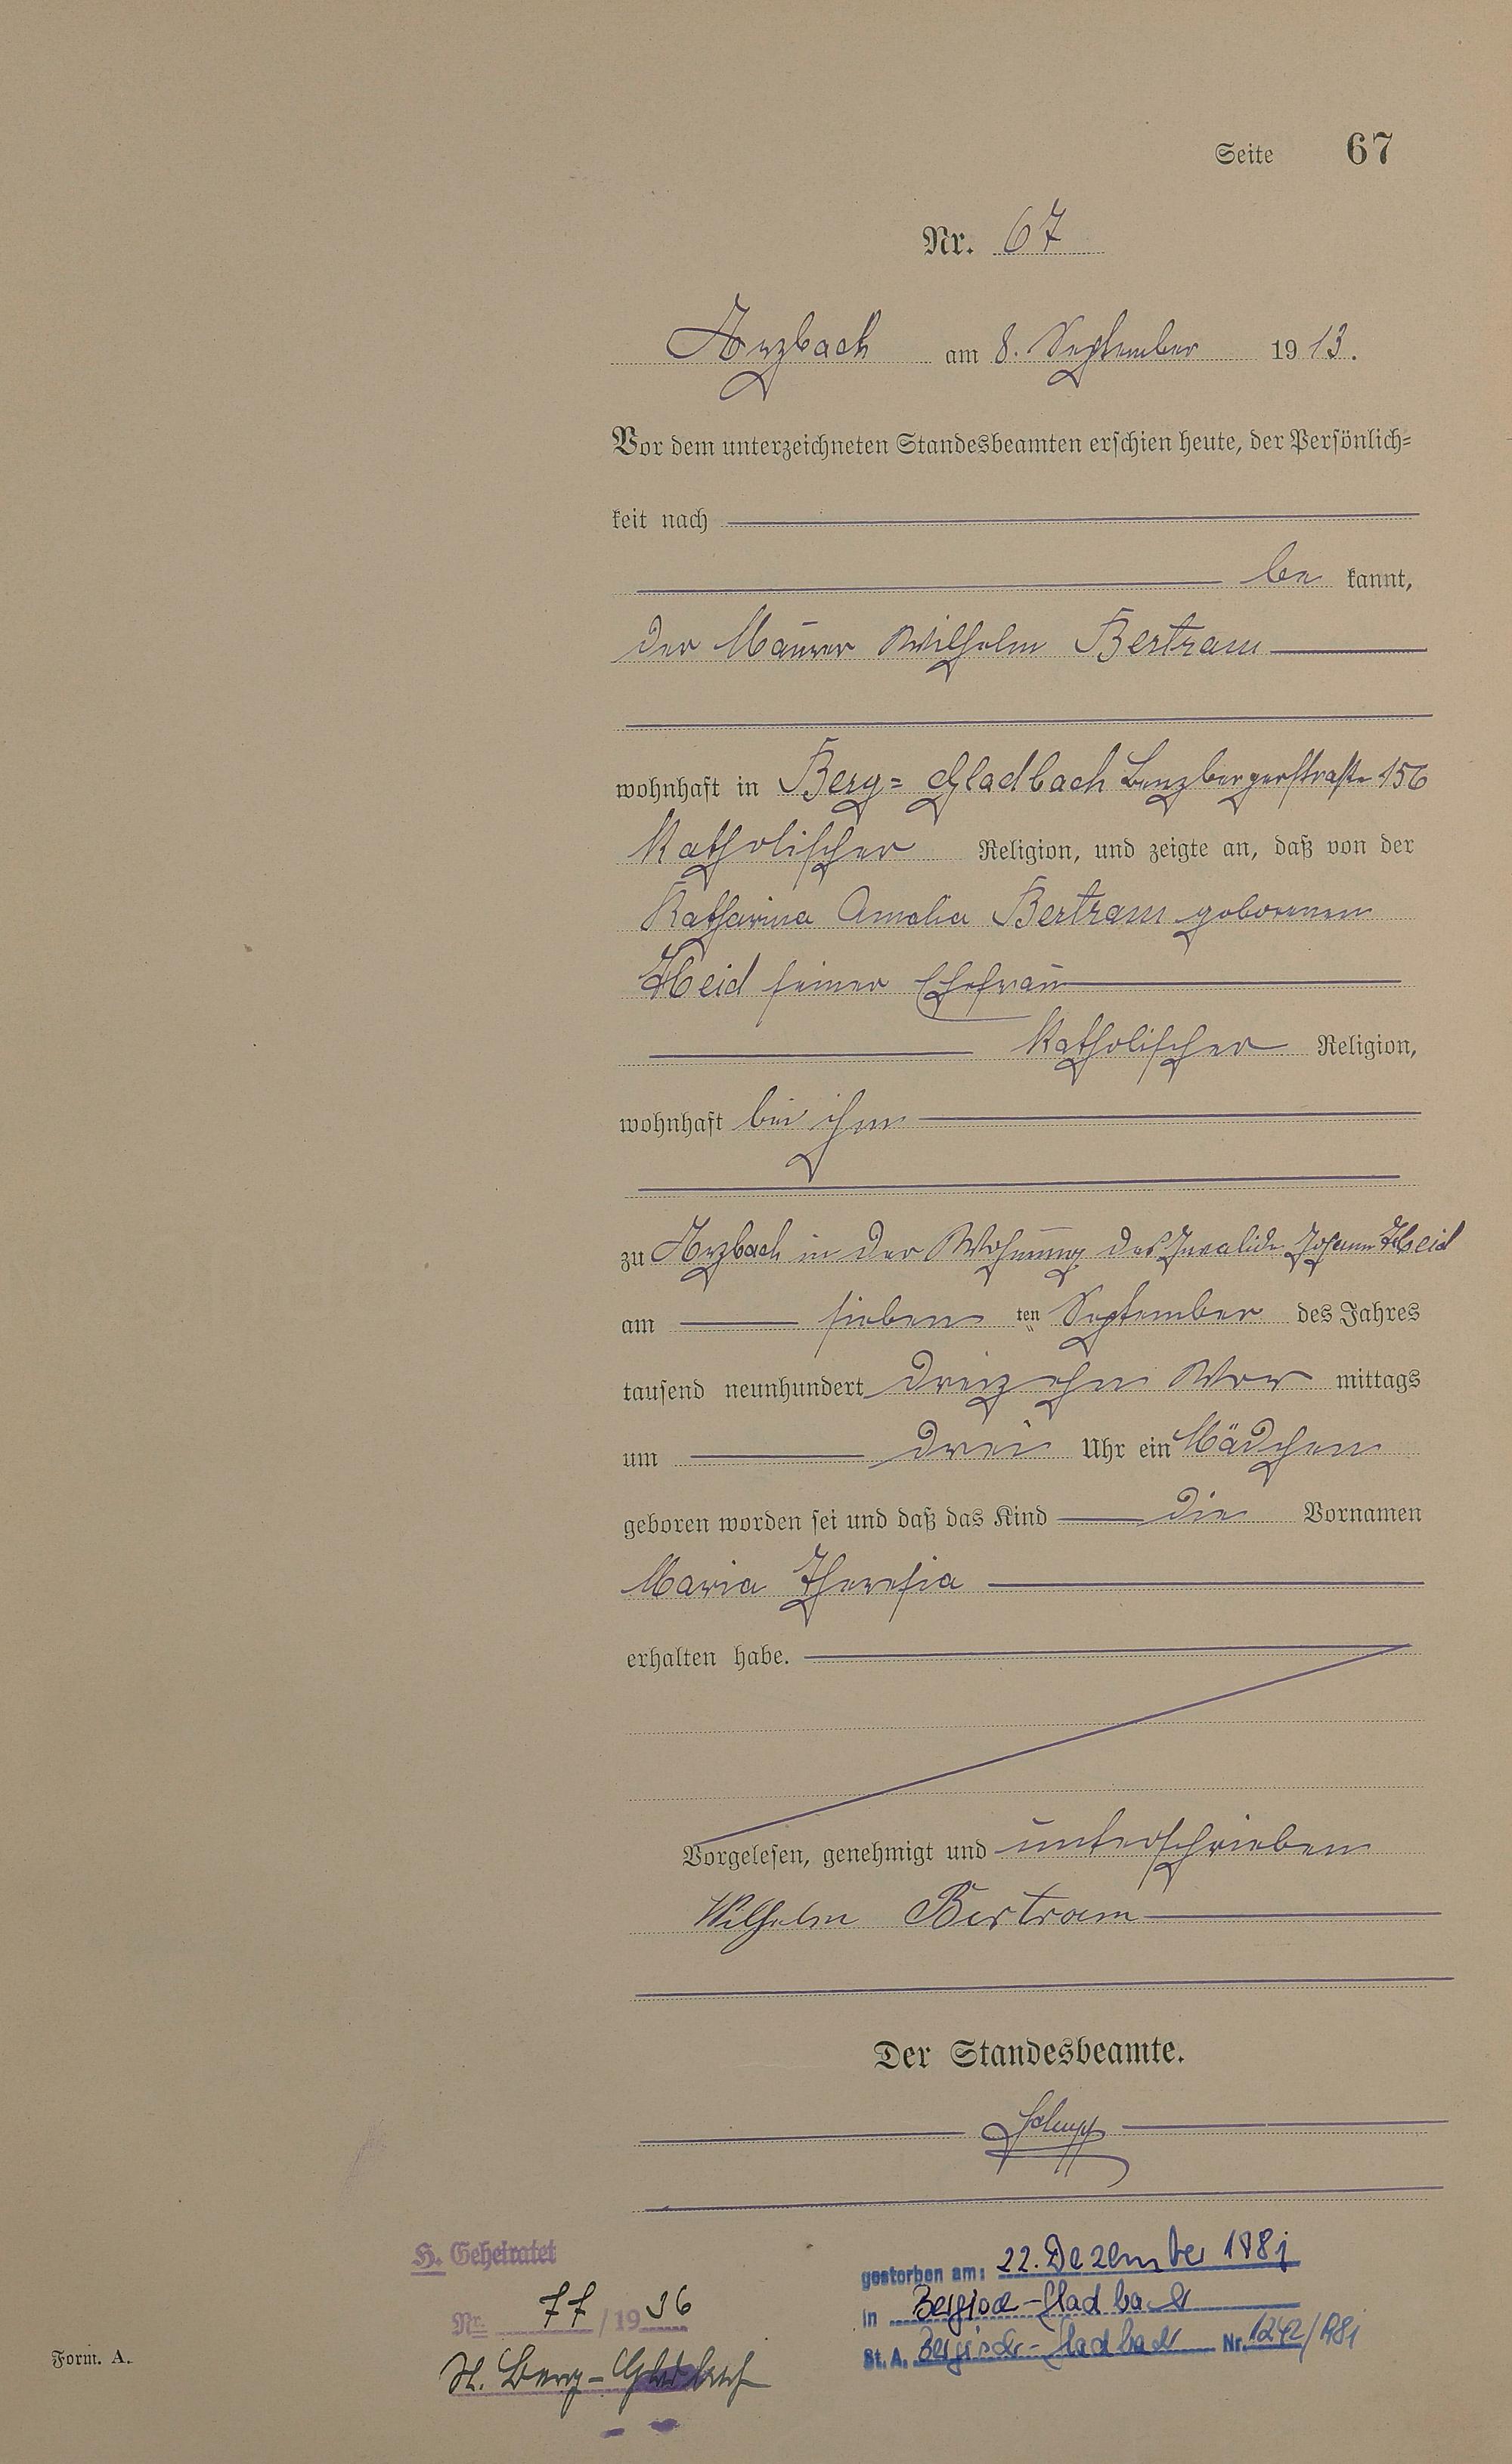 Seite 67
Nr. 67
Arzbach am 8. September 1913.
Vor dem unterzeichneten Standesbeamten erschien heute, der Persönlich=
keit nach
be kannt,
der Maurer Wilhelm Bertram
wohnhaft in Berg=Gladbach Benzbergerstraße 156
Katholischer Religion, und zeigte an, daß von der
Katharina Amalia Bertram geborenen
Heid seiner Ehefrau
Katholischer Religion,
wohnhaft bei ihm
zu Arzbach in der Wohnung des Invalide Johann Heid
am sieben ten September des Jahres
tausend neunhundert dreizehn Vor mittags
um drei Uhr ein Mädchen
geboren worden sei und daß das Kind die Vornamen
Maria Theresia
erhalten habe.
Vorgelesen, genehmigt und unterschrieben
Wilhelm Bertram
Der Standesbeamte.
H. Geheiratet
Nr. 77/1936
St. Berg-Gladbach
gestorben am: 22. Dezember 1981
in Bergisch-Gladbach
St. A. Bergisch-Gladbach Nr. 1242/1981
Form. A.